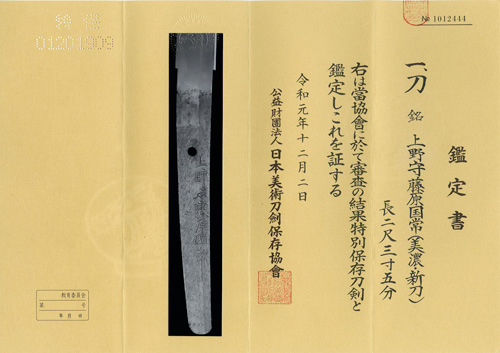 № 1012444
鑑定書
一、刀 銘 上野守藤原国常(美濃・新刀)
長二尺三寸五分
右は當協會に於て審査の結果特別保存刀剣と
鑑定しこれを証する
令和元年十二月二日
公益財團法人 日本美術刀劍保存協會
01201909
教育委員会
第 号
年 月 日